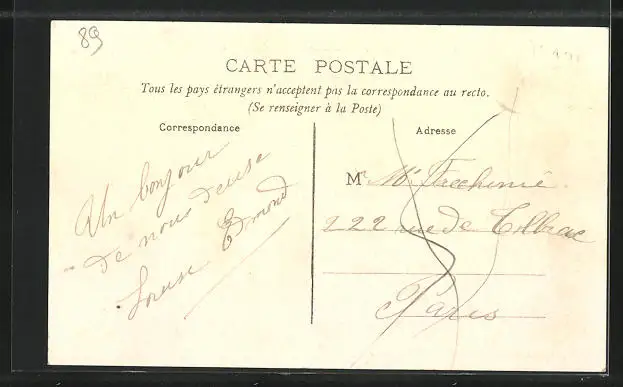 89
CARTE POSTALE
Tous les pays étrangers n'acceptent pas la correspondance au recto.
(Se renseigner à la Poste)
Correspondance
Adresse
Un bonjour
de nous deuse
Louise Edmond
M
222 rue de
Paris